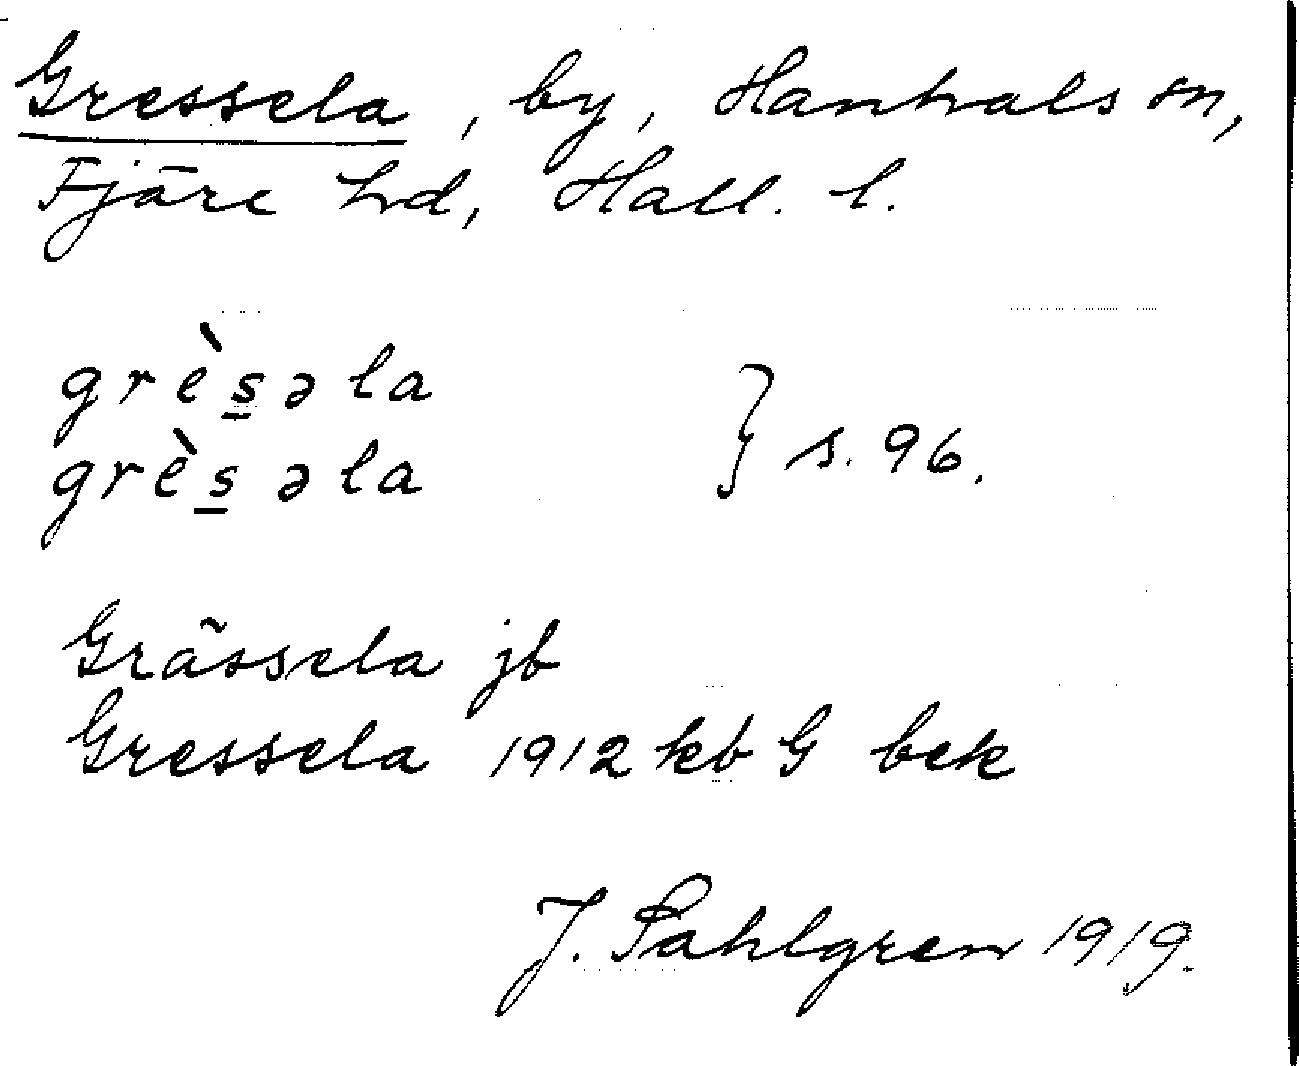 Gressela, by, Hanhals sn,
Fjäre hd, Hall. l.
grès̲əla
grès̲əla } s. 96.
Grässela jb
Gressela 1912 kb G bek
J. Sahlgren 1919.